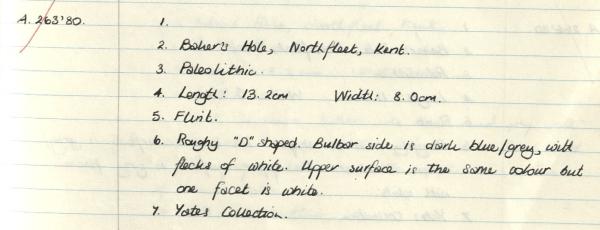 A. 263'80. 1.
2. Baker's Hole, Northfleet, Kent.
3. Paleolithic.
4. Length: 13.2cm Width: 8.0cm.
5. Flint.
6. Roughy "D" shaped. Bulbar side is dark blue/grey, with
flecks of white. Upper surface is the same colour but
one facet is white.
7. Yates Collection.